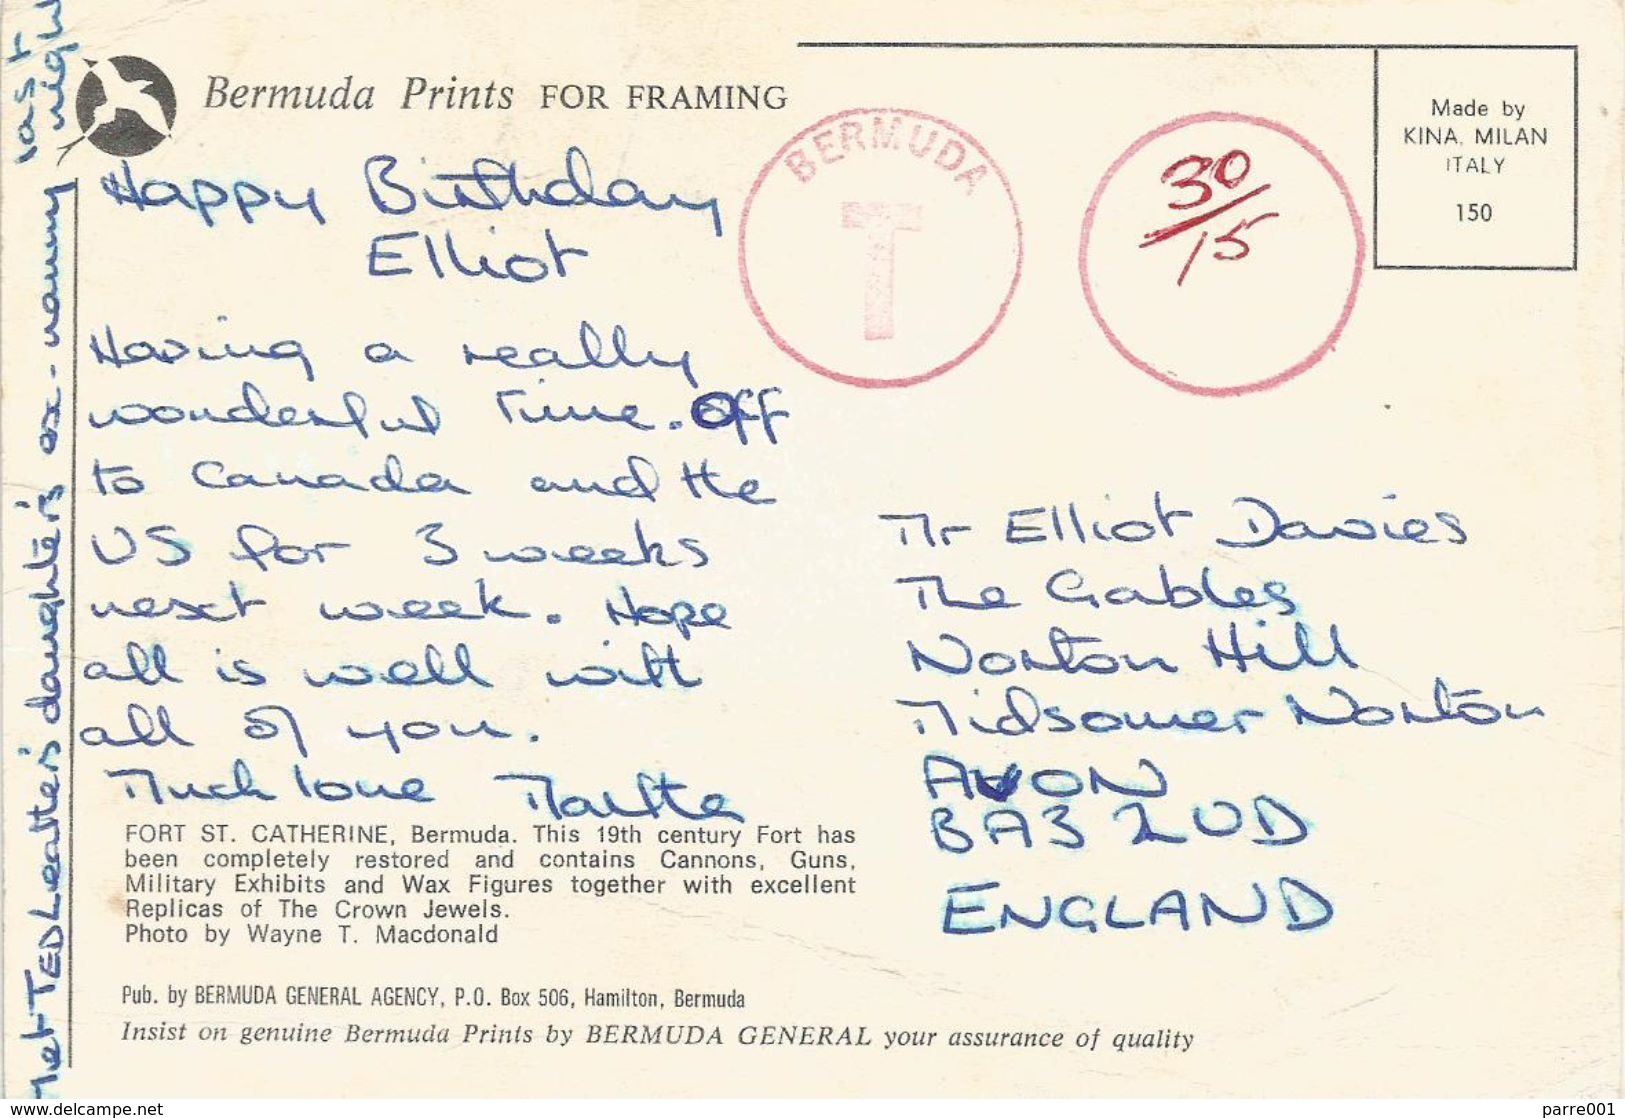 Bermuda Prints FOR FRAMING
Made by
KINA, MILAN
ITALY
150
BERMUDA
T
30/15
Happy Birthday
Elliot
Having a really
wonderful time. Off
to Canada and the
US for 3 weeks
next week. Hope
all is well with
all of you.
Much love
Met TED Leather's daughter's ex-nanny
last
night
Mr Elliot Davies
The Gables
Norton Hill
Midsomer Norton
AVON
BA3 2UD
ENGLAND
FORT ST. CATHERINE, Bermuda. This 19th century Fort has
been completely restored and contains Cannons, Guns,
Military Exhibits and Wax Figures together with excellent
Replicas of The Crown Jewels.
Photo by Wayne T. Macdonald
Pub. by BERMUDA GENERAL AGENCY, P.O. Box 506, Hamilton, Bermuda
Insist on genuine Bermuda Prints by BERMUDA GENERAL your assurance of quality
www.delcampe.net
parre001